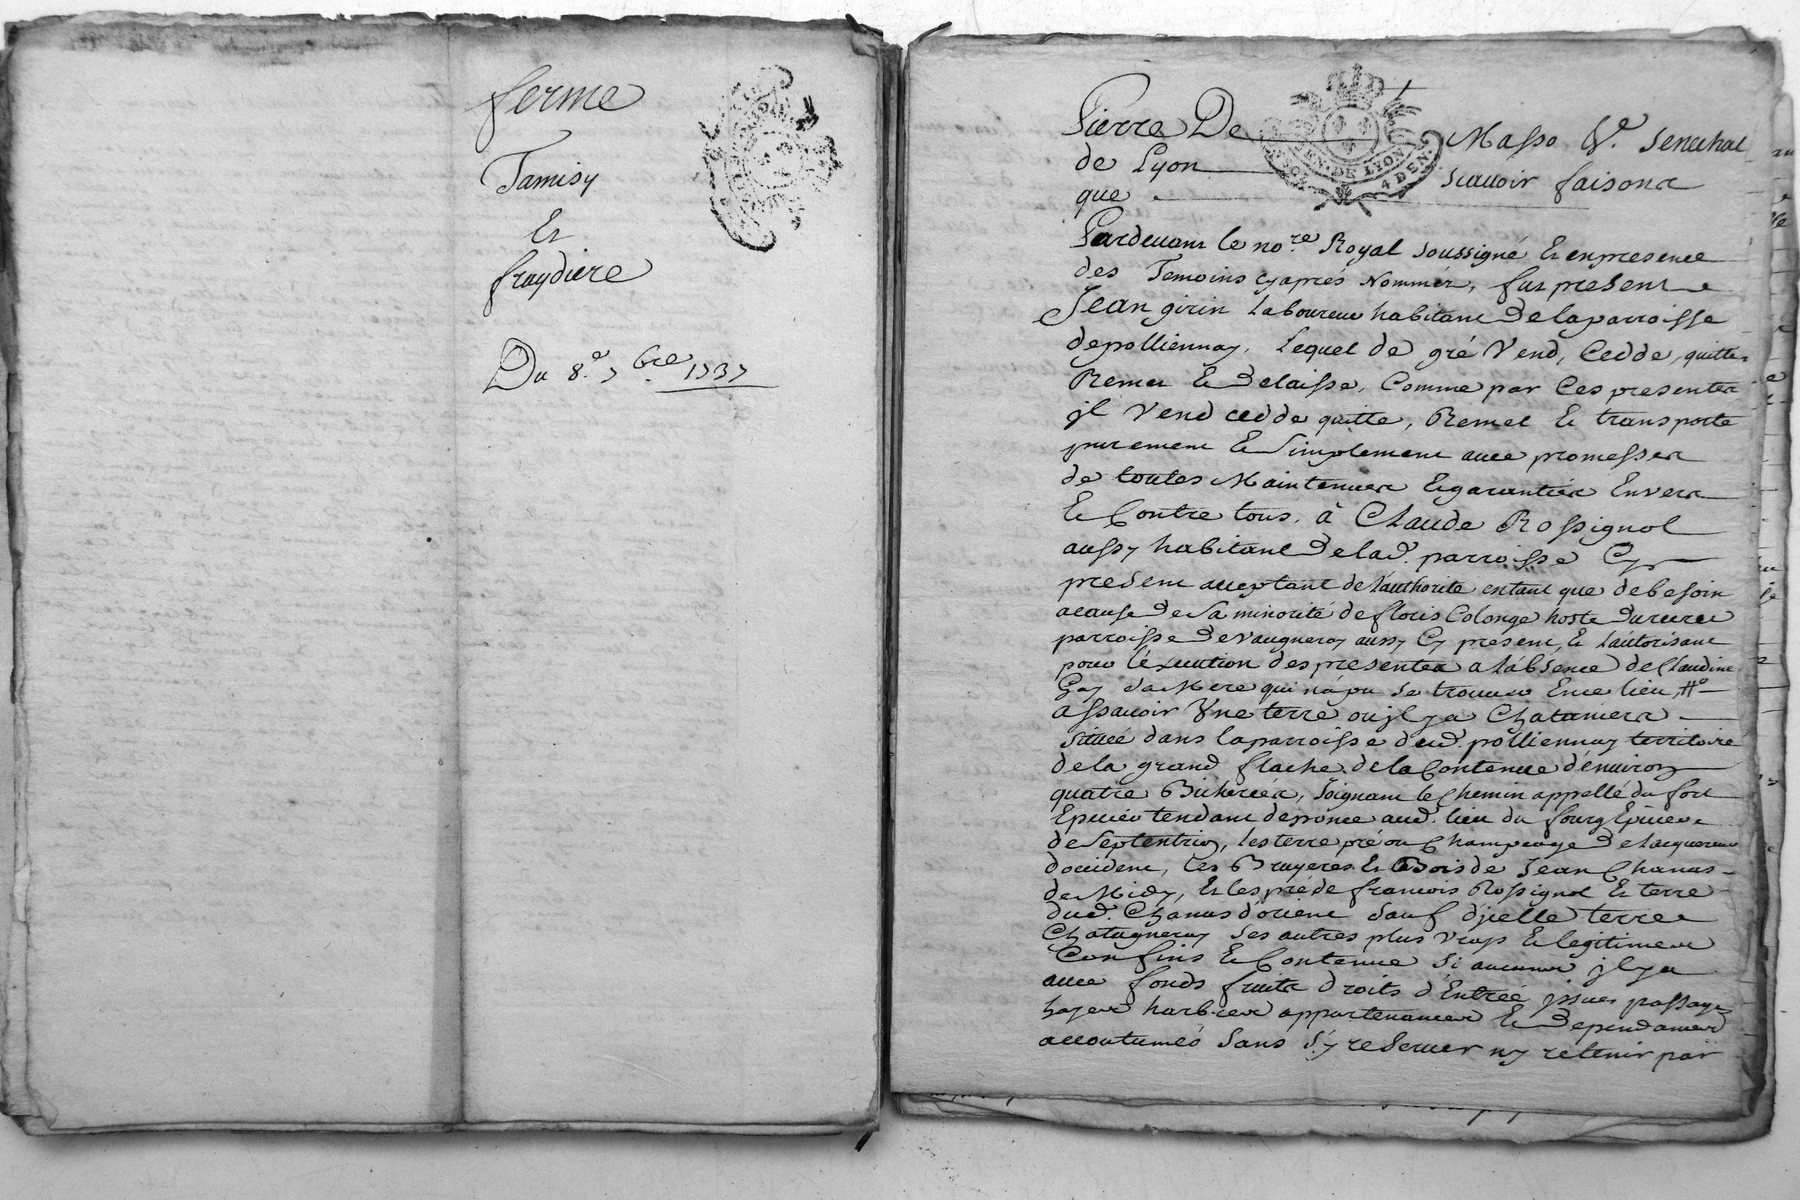 ferme
Tamisy
Et
fraydiere
Du 8.e 7bre 1737
Pierre De Masso Sr. Senechal
de Lyon scauoir faisons
que
GEN. DE LYON
4 DEN.
Pardeuant le nore. Royal soussigné Et en presence
des Temoins cy aprés Nommés, fut present
Jean girin Laboureur habitant de la parroisse
de polliennay, Lequel de gré Vend, Cedde, quitte
Remet Et delaisse, Comme par Ces presentes
jl Vend cedde quitte, Remet Et transporte
purement Et Simplement auec promesses
de toutes Maintenues Et garanties Envers
Et Contre tous, à Claude Rossignol
aussy habitant de lad. parroisse Cy
present acceptant de l'authorité entant que de besoin
acause de Sa minorité de floris Colonge hoste
parroisse de Vaugneray aussy Cy present, Et l'autorisant
pour l'éxecution des presentes a l'absence de Claudine
Gay Sa Mere qui n'a pu se trouuer En ce lieu,
assauoir Vne terre ou jl y a Chataniers
Située dans la parroisse dud. polliennay territoire
de la grand flache de la Contenue d'énuiron
quatre Bicherées, Joignant le Chemin appellé du four
Epicier tendant aud. lieu du fourg Epicier
de Septentrion, les terre pré ou Champeage de l'acquereur
d'occident, les Bruyeres Et Bois de Jean Chanas
de Midy, Et les pré de francois Rossignol Et terre
dud. Chanas d'orient Sauf d'jcelle terre
Chatagneray Ses autres plus Vrays Et legitimes
Confins Et Contenue Si aucuns jl y a
auec fonds fruits droits d'Entrée jssues passages
hayes appartenances Et dependances
accoutumés Sans S'y reseruer ny retenir par